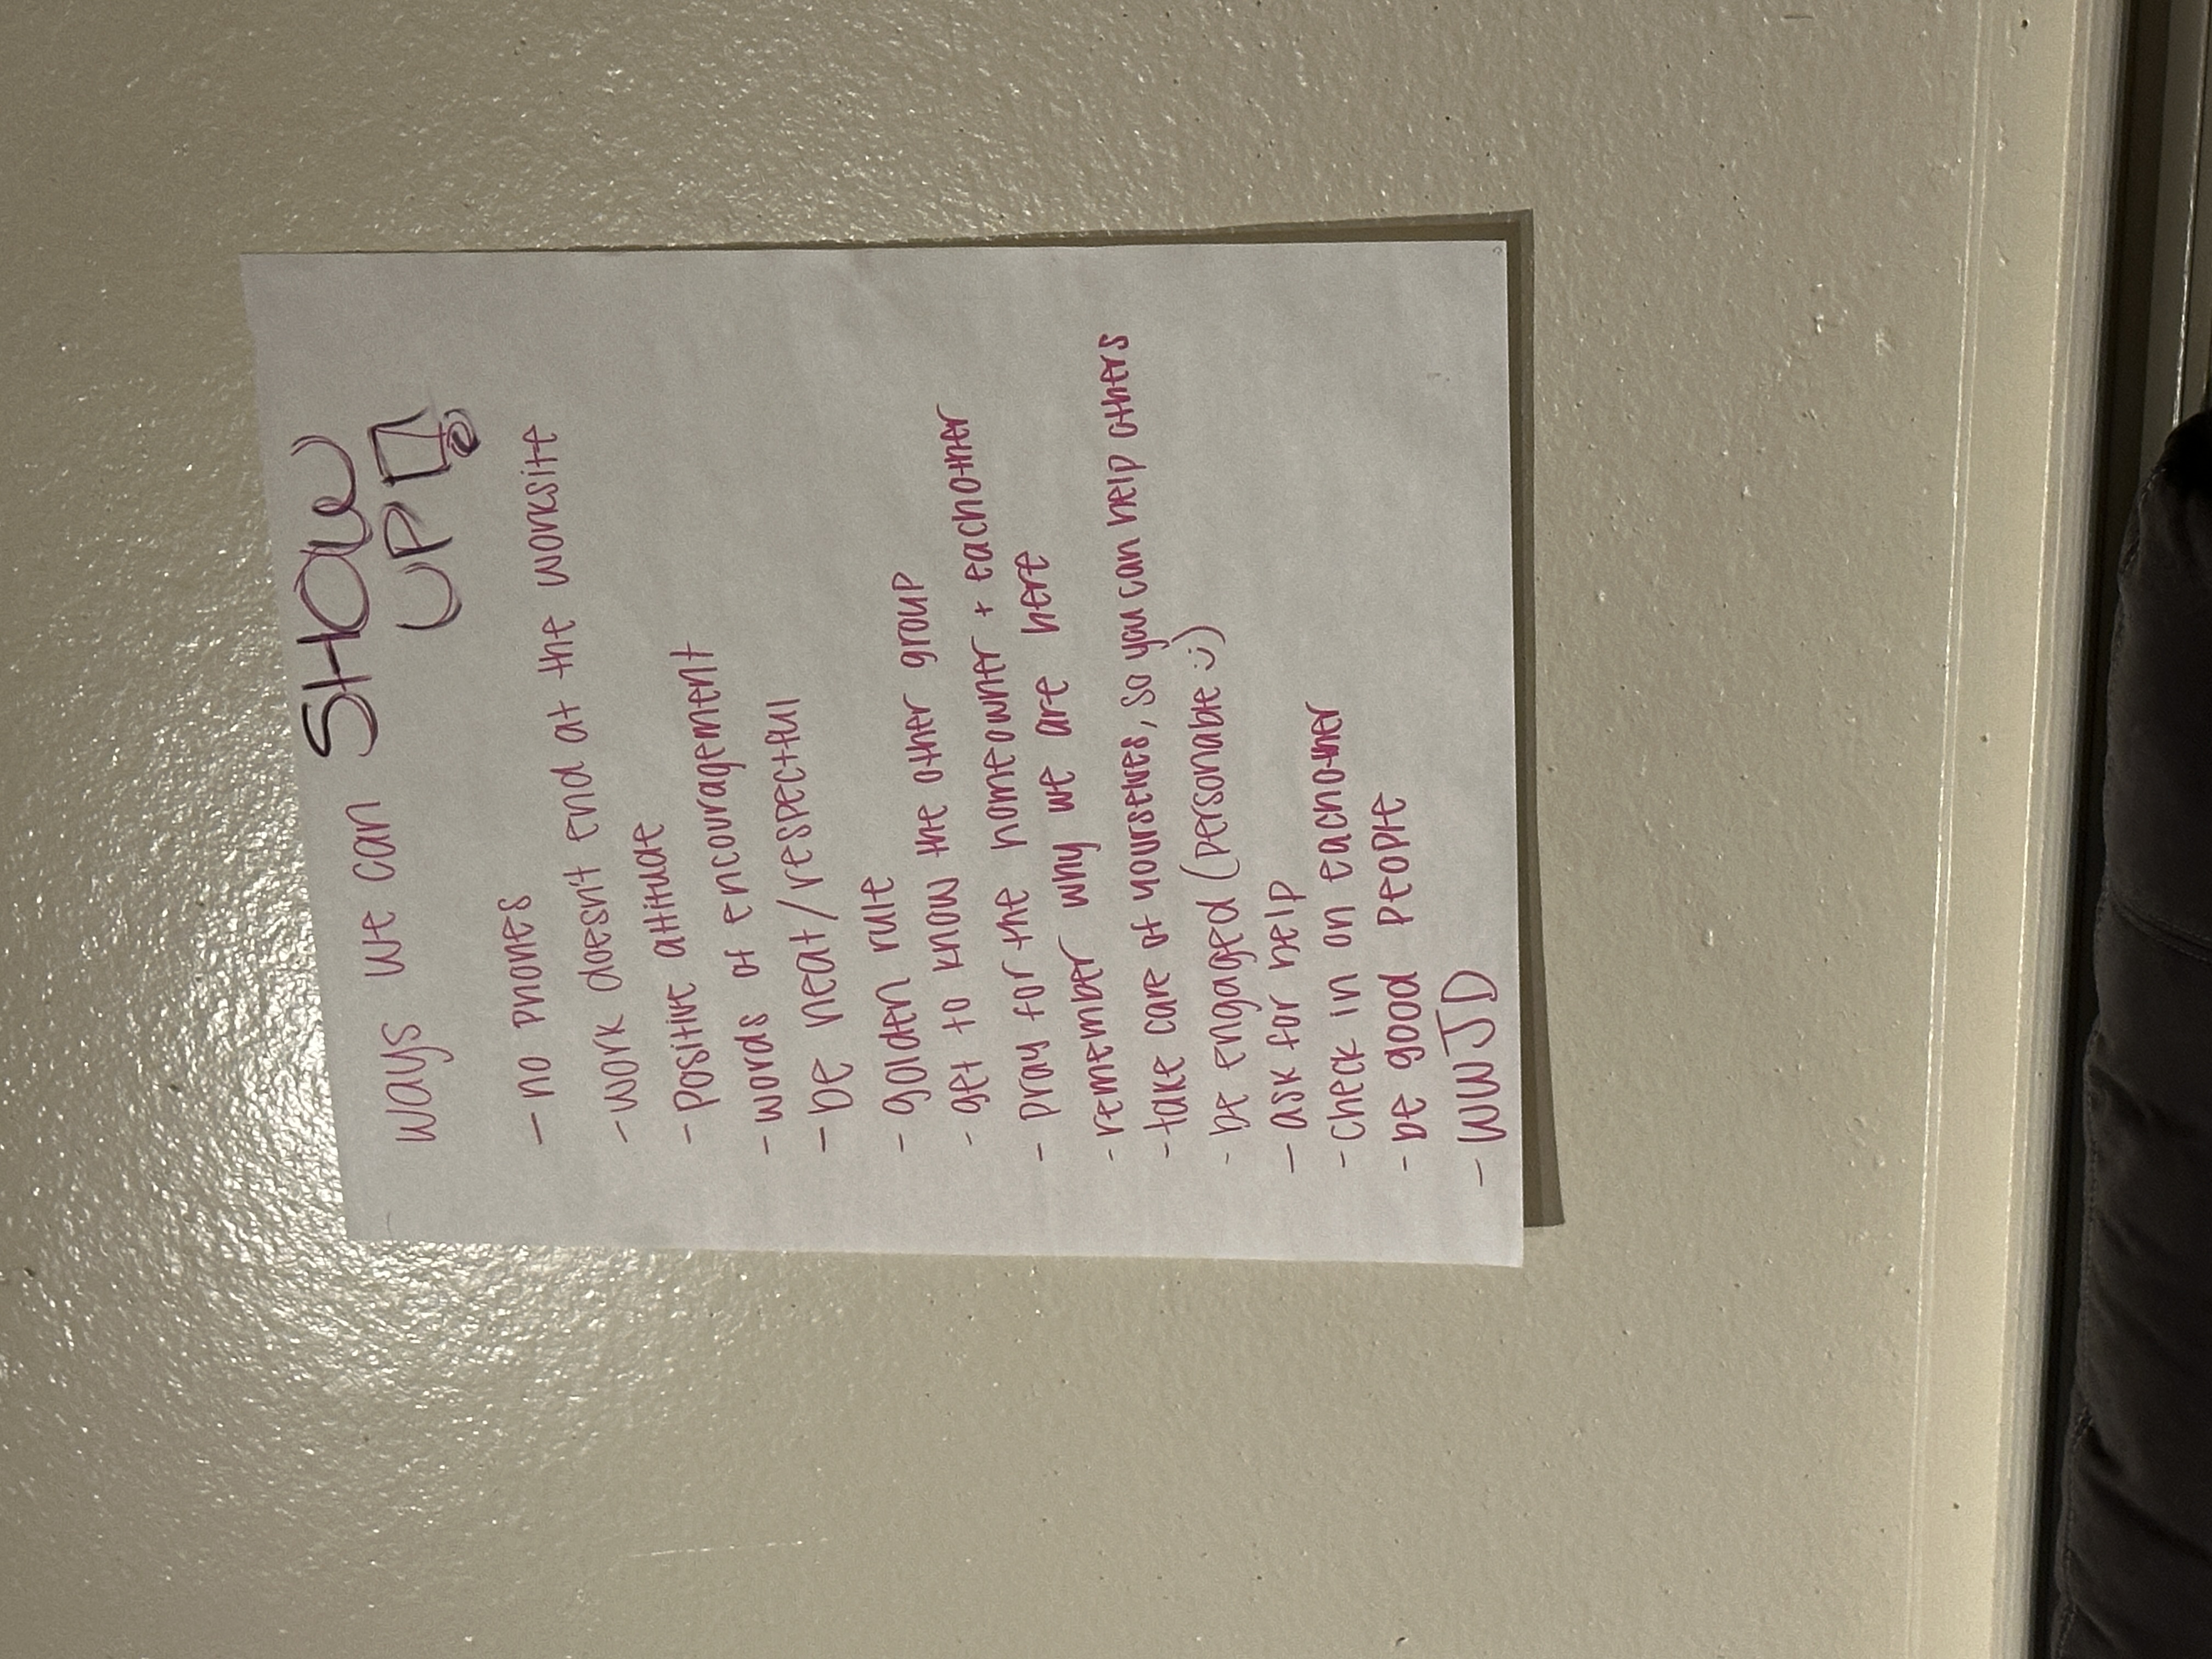 ways we can SHOW
UP!
- no phones
- work doesn't end at the worksite
- positive attitude
- words of encouragement
- be neat/respectful
- golden rule
- get to know the other group
- pray for the homeowner + eachother
- remember why we are here
- take care of yourselves, so you can help others
- be engaged (personable :))
- ask for help
- check in on eachother
- be good people
- WWJD